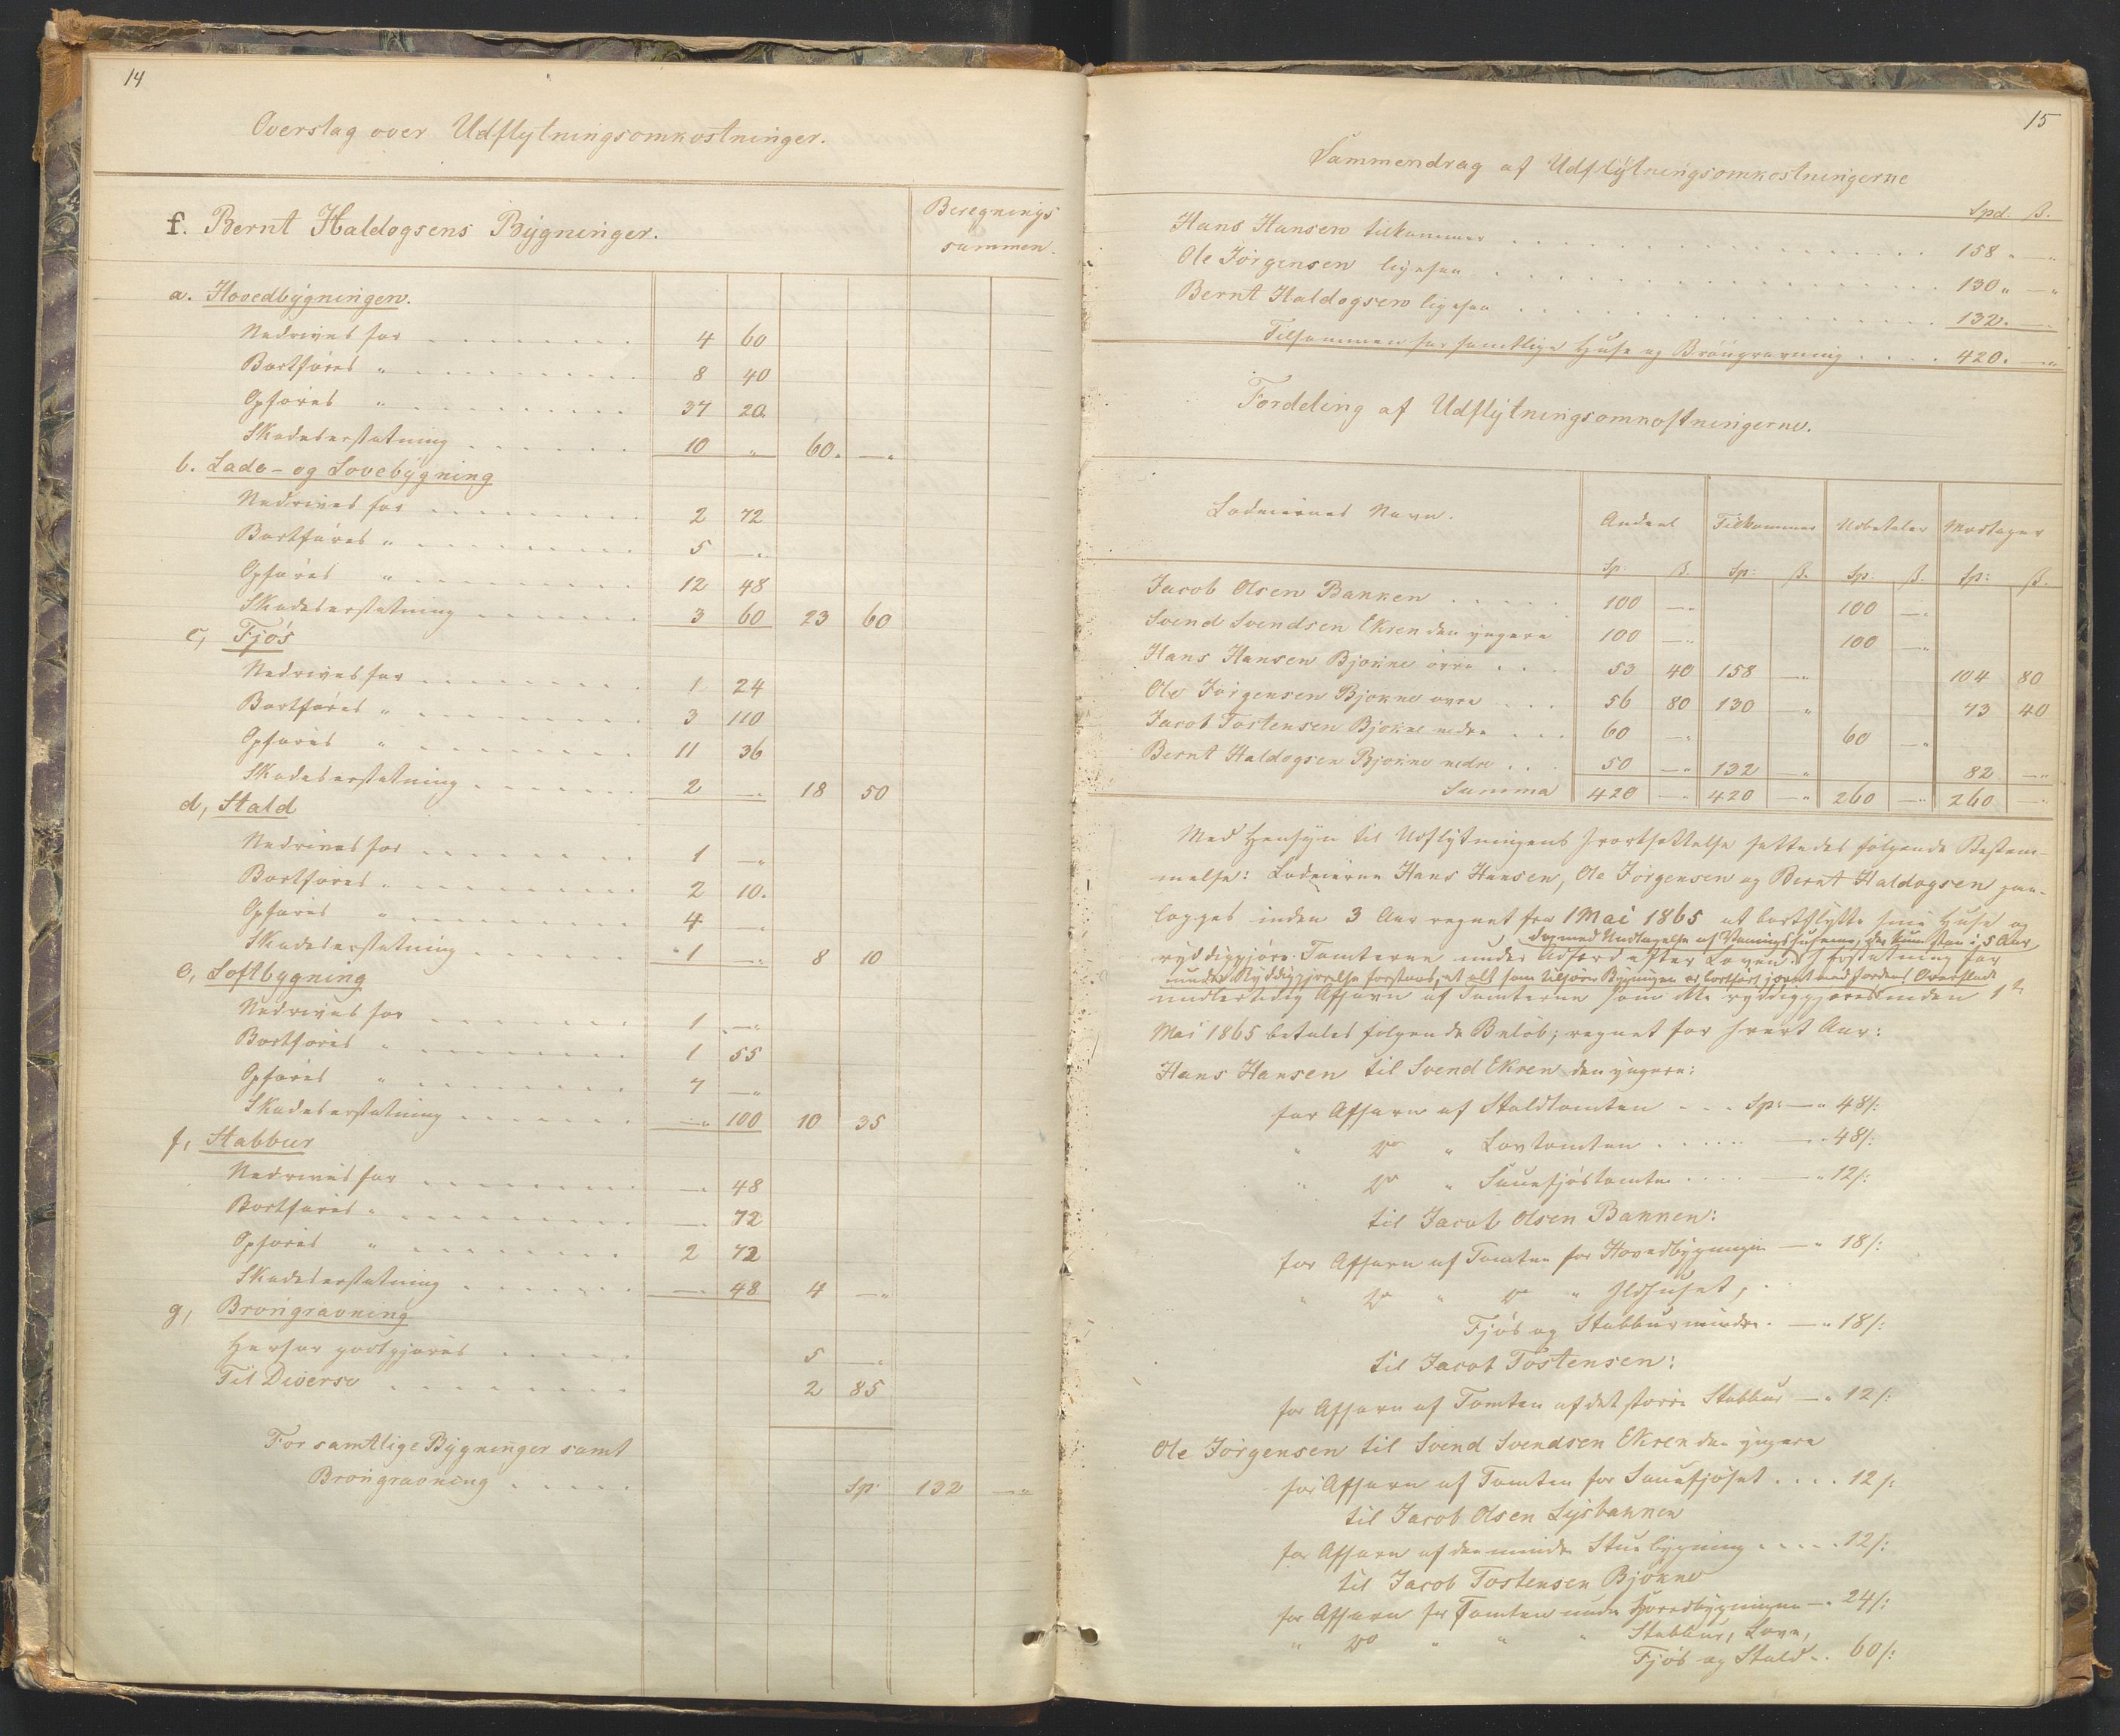 14
Overslag over Udflytningsomkostninger.
f. Bernt Haldogsens Bygninger.
Beregnings
summen.
a. Hovedbygningen.
Nedrives for . . . . . . . . 4 60
Bortføres " . . . . . . . . 8 40
Opføres " . . . . . . . . 37 20.
Skadeserstatning . . . . . . 10 " 60. —"
b. Lade- og Lovebygning
Nedrives for . . . . . . . . 2 72
Bortføres " . . . . . . . . 5 —"
Opføres " . . . . . . . . 12 48
Skadeserstatning . . . . . . 3 60 23 60
c, Fjøs
Nedrives for . . . . . . . . 1 24
Bortføres " . . . . . . . . 3 110
Opføres " . . . . . . . . 11 36
Skadeserstatning . . . . . . 2 —" 18 50
d, Stald
Nedrives for . . . . . . . . 1 —"
Bortføres " . . . . . . . . 2 10.
Opføres " . . . . . . . . 4 —"
Skadeserstatning . . . . . . 1 —" 8 10
e, Loftbygning
Nedrives for . . . . . . . . 1 —"
Bortføres " . . . . . . . . 1 55
Opføres " . . . . . . . . 7 —"
Skadeserstatning . . . . . . —" 100 10 35
f, Stabbur
Nedrives for . . . . . . . . —" 48
Bortføres " . . . . . . . . —" 72
Opføres " . . . . . . . . 2 72
Skadeserstatning . . . . . . —" 48 4 —"
g, Brøngravning
Herfor godtgjøres . . . . . 5 —"
Til Diverse . . . . . . . . 2 85
For samtlige Bygninger samt
Brøngravning . . . . . Sp: 132 —"
15
Sammendrag af Udflytningsomkostningerne
Spd. ß.
Hans Hansen tilkommer . . . . . . 158 " —"
Ole Jørgensen ligesaa . . . . . . 130 " —"
Bernt Haldogsen ligesaa . . . . . . 132. —"
Tilsammen for samtlige Huse og Brøngravning . . . . 420. —"
Fordeling af Udflytningsomkostningerne.
Lodeiernes Navn. Andeel Tilkommer Udbetaler Modtager
Sp: ß. Sp: ß. Sp: ß. Sp: ß.
Jacob Olsen Bakken . . . . . 100 —" 100 —"
Svend Svendsen Ekren den yngere 100 —" 100 —"
Hans Hansen Bjøkne øvre . . . 53 40 158 —" 104 80
Ole Jørgensen Bjøkne øvre . . . 56 80 130 —" 73 40
Jacob Tostensen Bjøkne nedre . . . 60 —" 60 —"
Bernt Haldogsen Bjøkne nedre . . . 50 —" 132 —" 82 —"
Summa 420 —" 420 —" 260 —" 260 —"
Med Hensyn til Udflytningens Iværksættelse fattedes følgende Bestem-
melse: Lodeierne Hans Hansen, Ole Jørgensen og Bernt Haldogsen paa-
lægges inden 3 Aar regnet fra 1 Mai 1865 at bortflytte sine Huse og
dog med Undtagelse af Vaaningshusene, der kun staa i 5 Aar
ryddiggjøre Tomterne under Adfærd efter Loven. I Erstatning for
under Ryddiggjørelse forstaaes, at alt som tilhører Bygningen er bortført jevnt med Jordens Overflade
midlertidig Afsavn af Tomterne som ikke ryddiggjøres inden 1te
Mai 1865 betales følgende Beløb, regnet for hvert Aar:
Hans Hansen til Svend Ekren den yngere:
for Afsavn af Staldtomten . . . Sp: —" 48/:
" Do " Lovtomten . . . . . —" 48/:
" Do " Sauefjøstomten . . . . —" 12/:
til Jacob Olsen Bakken:
for Afsavn af Tomten for Hovedbygningen —" 18/:
" Do " Do " Ildhuset,
Fjøs og Stabbur mindre. —" 18/:
til Jacob Tostensen:
for Afsavn af Tomten af det større Stabbur —" 12/:
Ole Jørgensen til Svend Svendsen Ekren den yngere
for Afsavn af Tomten for Sauefjøset . . . . 12/:
til Jacob Olsen Lysbakken
for Afsavn af den mindre Stuebygning . . . . . 12/:
til Jacob Tostensen Bjøkne
for Afsavn for Tomten under Hovedbygningen —" 24/:
" Do " " " Stabbur, Love,
Fjøs og Stald . . 60/: